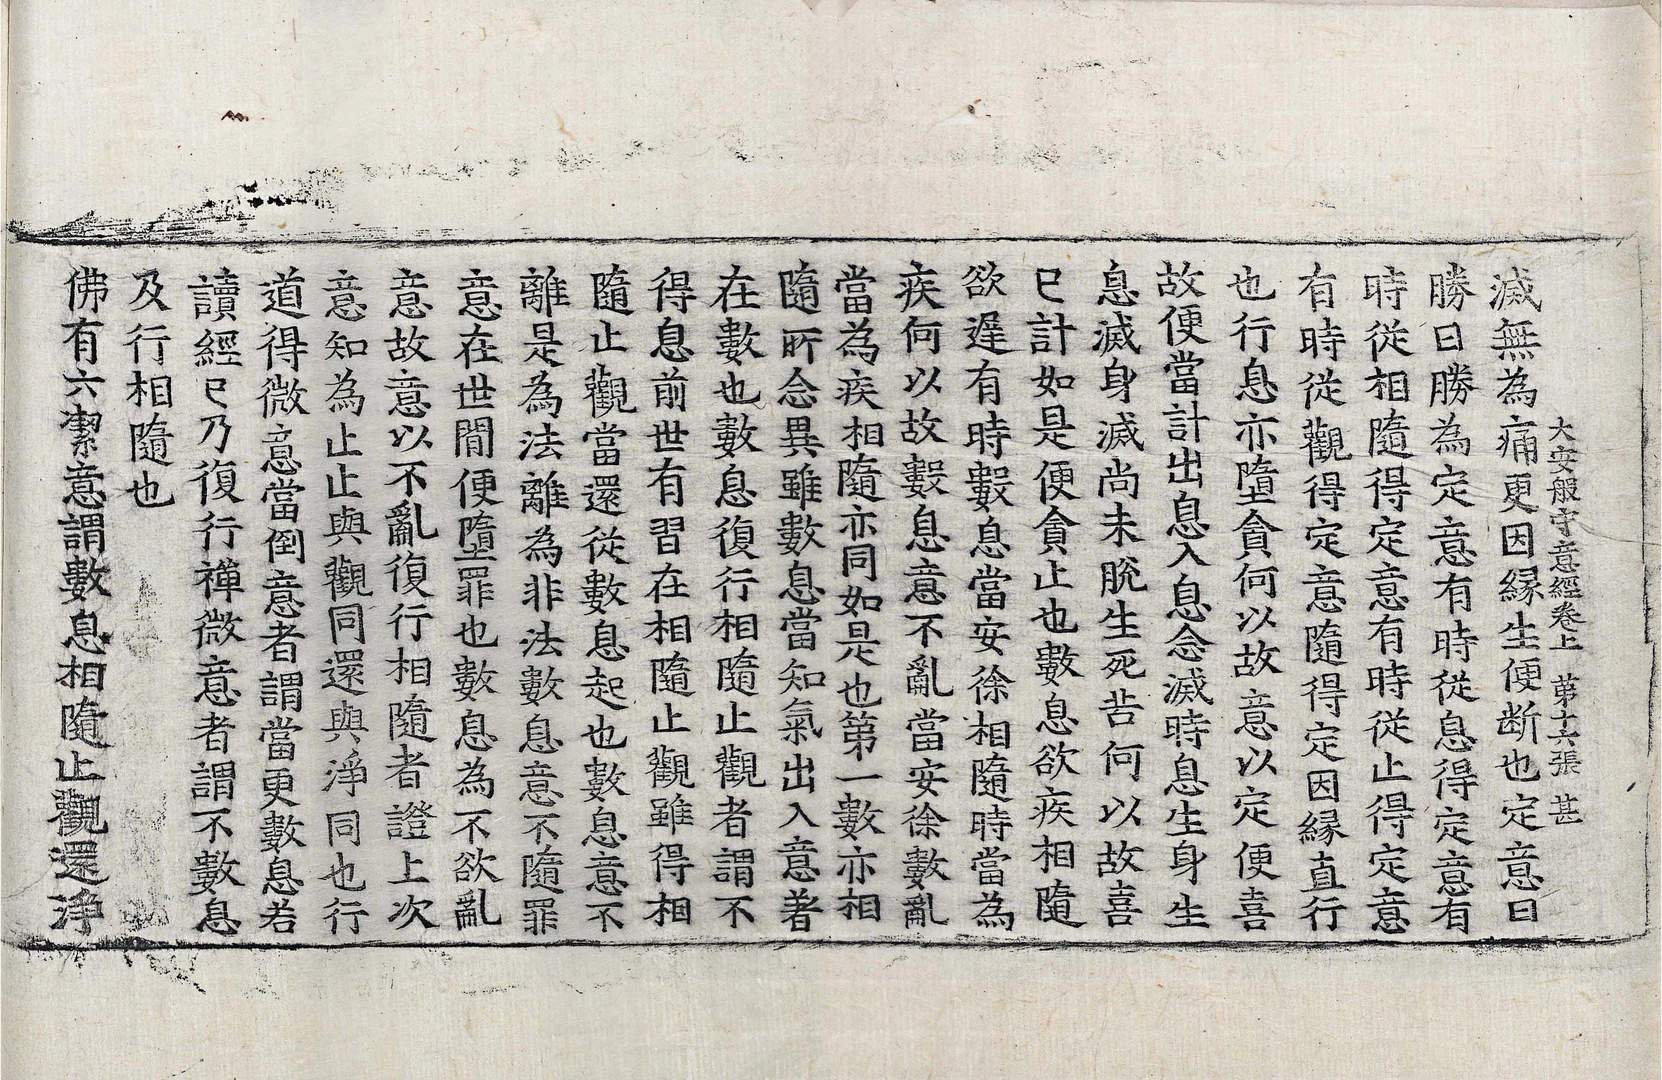 大安般守意經卷上 第十六張 甚
滅無為痛更因緣生便断也定意曰
勝曰勝為定意有時從息得定意有
時從相隨得定意有時從止得定意
有時從觀得定意隨得定因緣直行
也行息亦墮貪何以故意以定便喜
故便當計出息入息念滅時息生身生
息滅身滅尚未脫生死苦何以故喜
已計如是便貪止也數息欲疾相隨
欲遲有時數息當安徐相隨時當為
疾何以故數息意不亂當安徐數亂
當為疾相隨亦同如是也第一數亦相
隨所念異雖數息當知氣出入意著
在數也數息復行相隨止觀者謂不
得息前世有習在相隨止觀雖得相
隨止觀當還從數息起也數息意不
離是為法離為非法數息意不隨罪
意在世間便墮罪也數息為不欲亂
意故意以不亂復行相隨者證上次
意知為止止與觀同還與淨同也行
道得微意當倒意者謂當更數息若
讀經已乃復行禪微意者謂不數息
及行相隨也
佛有六潔意謂數息相隨止觀還淨